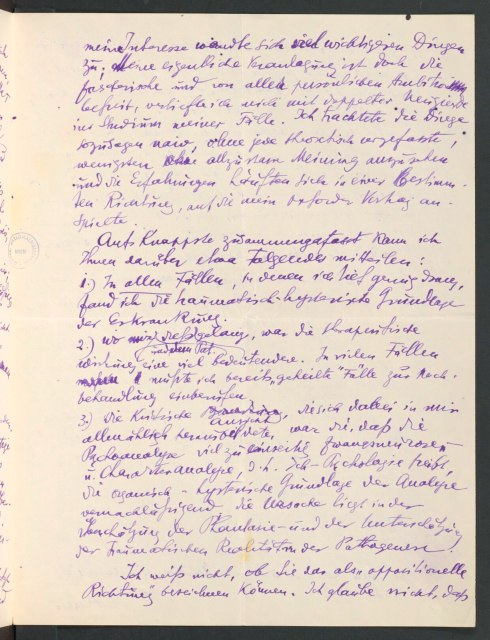 mein Interesse wandte sich viel wichtigeren Dingen
zu; Meine eigentliche Veranlagung ist doch die
forscherische und von allen persönlichen Ambitionen
befreit, vertiefte ich mich mit doppelter Neugierde
ins Studium meiner Fälle. Ich trachtete die Dinge
sozusagen naiv, ohne jede theoretisch vorgefasste,
wenigstens ohne allzu starre Meinung anzusehen
und die Erfahrungen häuften sich in einer bestimm-
ten Richtung, auf die mein Oxforder Vortrag an-
spielte.
Aufs Knappste zusammengefasst kann ich
Ihnen darüber etwa Folgendes mitteilen:
1.) In allen Fällen, in denen ich tief genug drang,
fand ich die traumatisch-hysterische Grundlage
der Erkrankung.
2.) Wo mir dies gelang, war die therapeutische
Wirkung eine viel bedeutendere. In vielen Fällen
musste ich bereits „geheilte" Fälle zur Nach-
behandlung einberufen.
3.) Die kritische Ansicht, die sich dabei in mir
allmählich herausbildete, war die, daß die
Psychoanalyse viel zu einseitig Zwangsneurosen-
u. Charakteranalyse, d.h. Ich-Psychologie treibt,
die organisch-hysterische Grundlage der Analyse
vernachlässigend; die Ursache liegt in der
Überschätzung der Phantasie- und der Unterschätzung
der traumatischen Realität in der Pathogenese.
Ich weiß nicht, ob Sie das als „oppositionelle
Richtung" bezeichnen können. Ich glaube nicht, daß